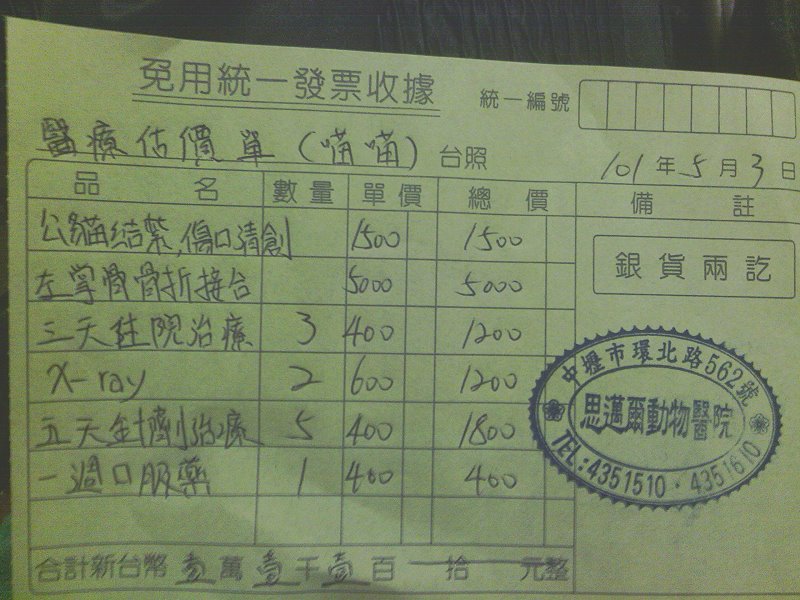 免用統一發票收據
統一編號
醫療估價單(喵喵) 台照
101年5月3日
品名 數量 單價 總價 備註
公貓結紮,傷口清創 1500 1500
左掌骨骨折接合 5000 5000
三天住院治療 3 400 1200
X-ray 2 600 1200
五天針劑治療 5 400 1800
一週口服藥 1 400 400
合計新台幣壹萬壹千壹百拾元整
銀貨兩訖
中壢市環北路562號
思邁爾動物醫院
TEL:4351510·4351610